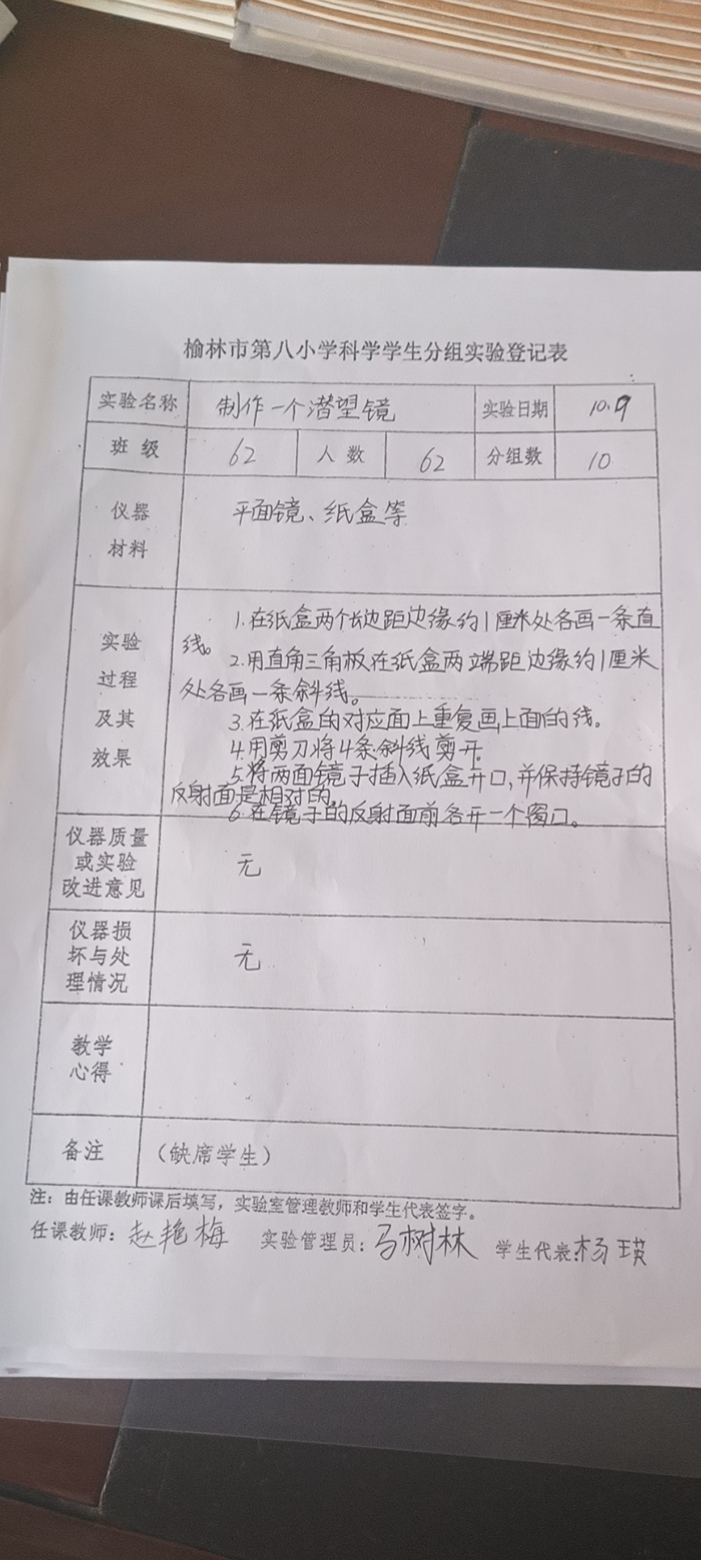 榆林市第八小学科学学生分组实验登记表
实验名称 制作一个潜望镜 实验日期 10.9
班级 62 人数 62 分组数 10
仪器材料 平面镜、纸盒等
实验过程及其效果
1.在纸盒两个长边距边缘约1厘米处各画一条直
线。
2.用直角三角板在纸盒两端距边缘约1厘米
处各画一条斜线。
3.在纸盒的对应面上重复画上面的线。
4.用剪刀将4条斜线剪开。
5.将两面镜子插入纸盒开口,并保持镜子的
反射面是相对的。
6.在镜子的反射面前各开一个窗口。
仪器质量或实验改进意见 无
仪器损坏与处理情况 无
教学心得
备注 (缺席学生)
注：由任课教师课后填写，实验室管理教师和学生代表签字。
任课教师：赵艳梅 实验管理员：马树林 学生代表:杨瑛